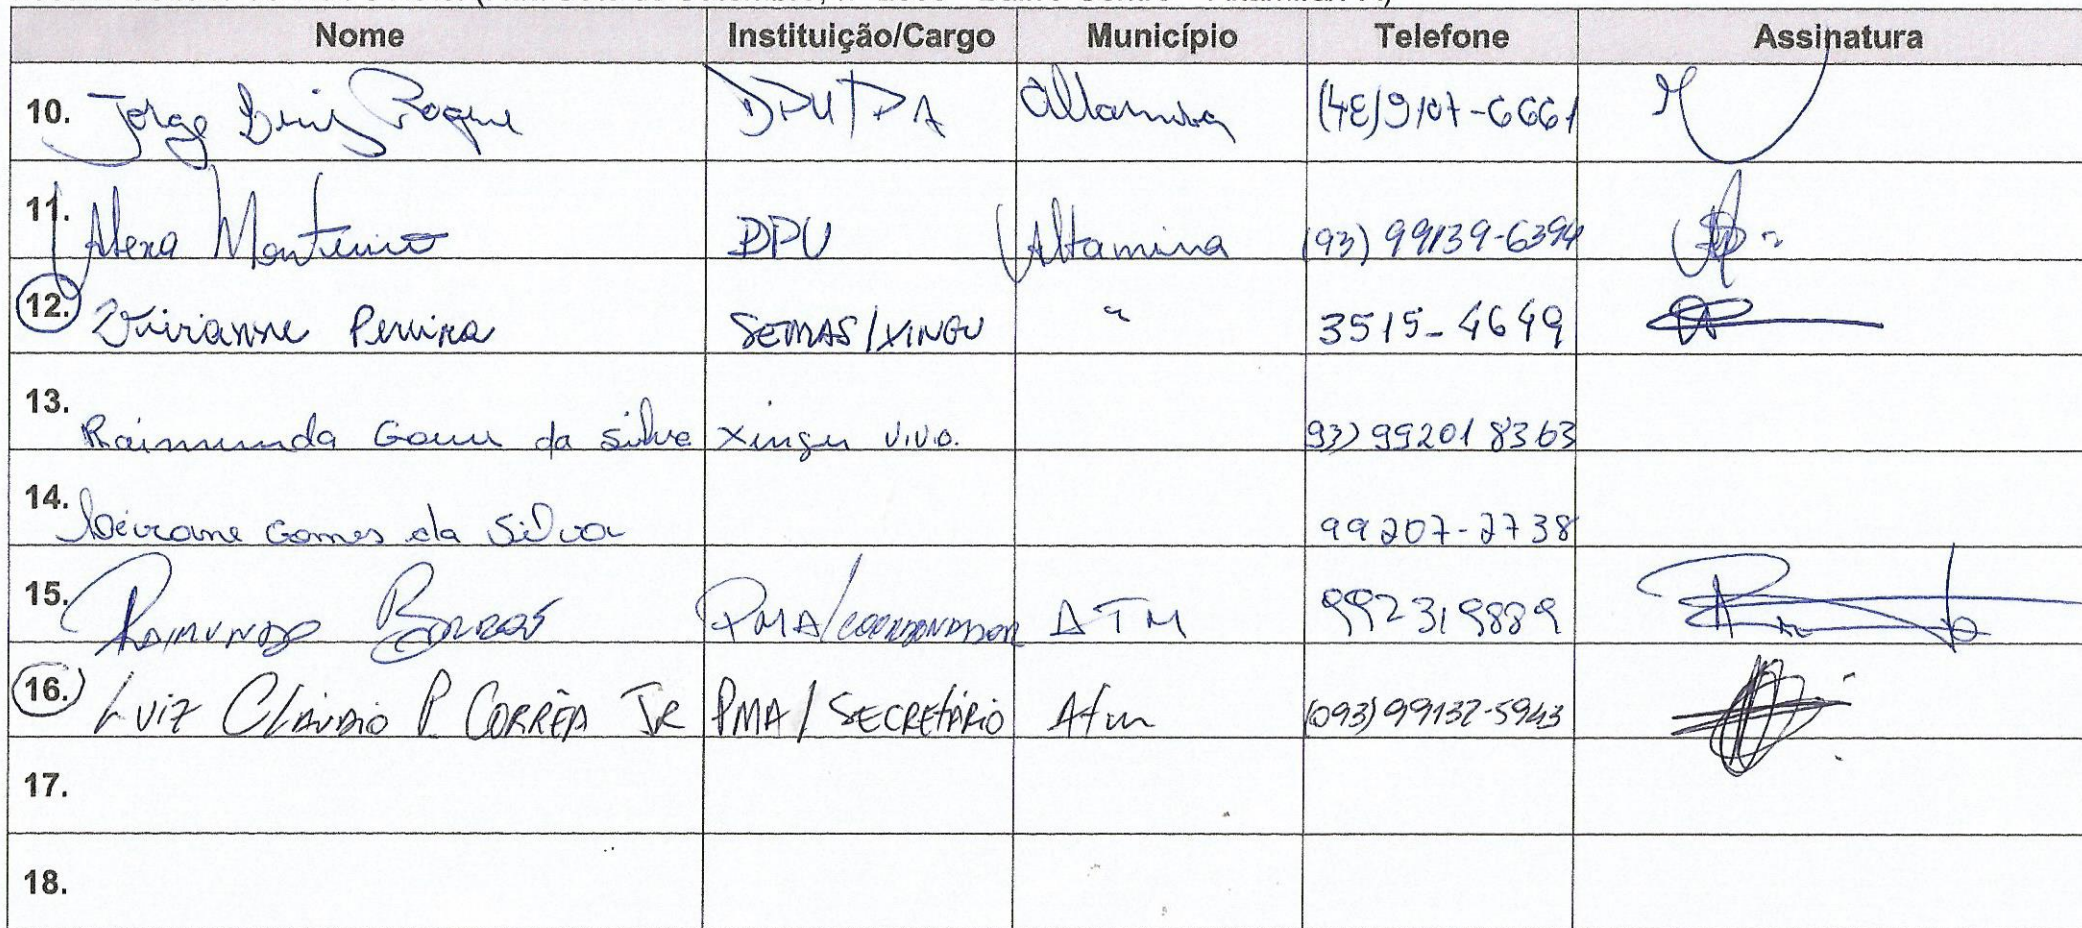 Nome Instituição/Cargo Município Telefone Assinatura
10. Jorge Luiz Roque DPU/PA Altamira (48)9107-6661
11. Alexa Monteiro DPU Altamira (93) 99139-6394
12. Vivianne Pereira SEMAS/XINGU " 3515-4649
13. Raimunda Gomes da Silva Xingu vivo. 93) 992018363
14. Gomes da Silva 99207-2738
15. RAIMUNDO PMA/COORDENADOR ATM 992319889
16. LUIZ CLAUDIO P. CORRÊA JR PMA / SECRETÁRIO Atm (093) 99132-5943
17.
18.